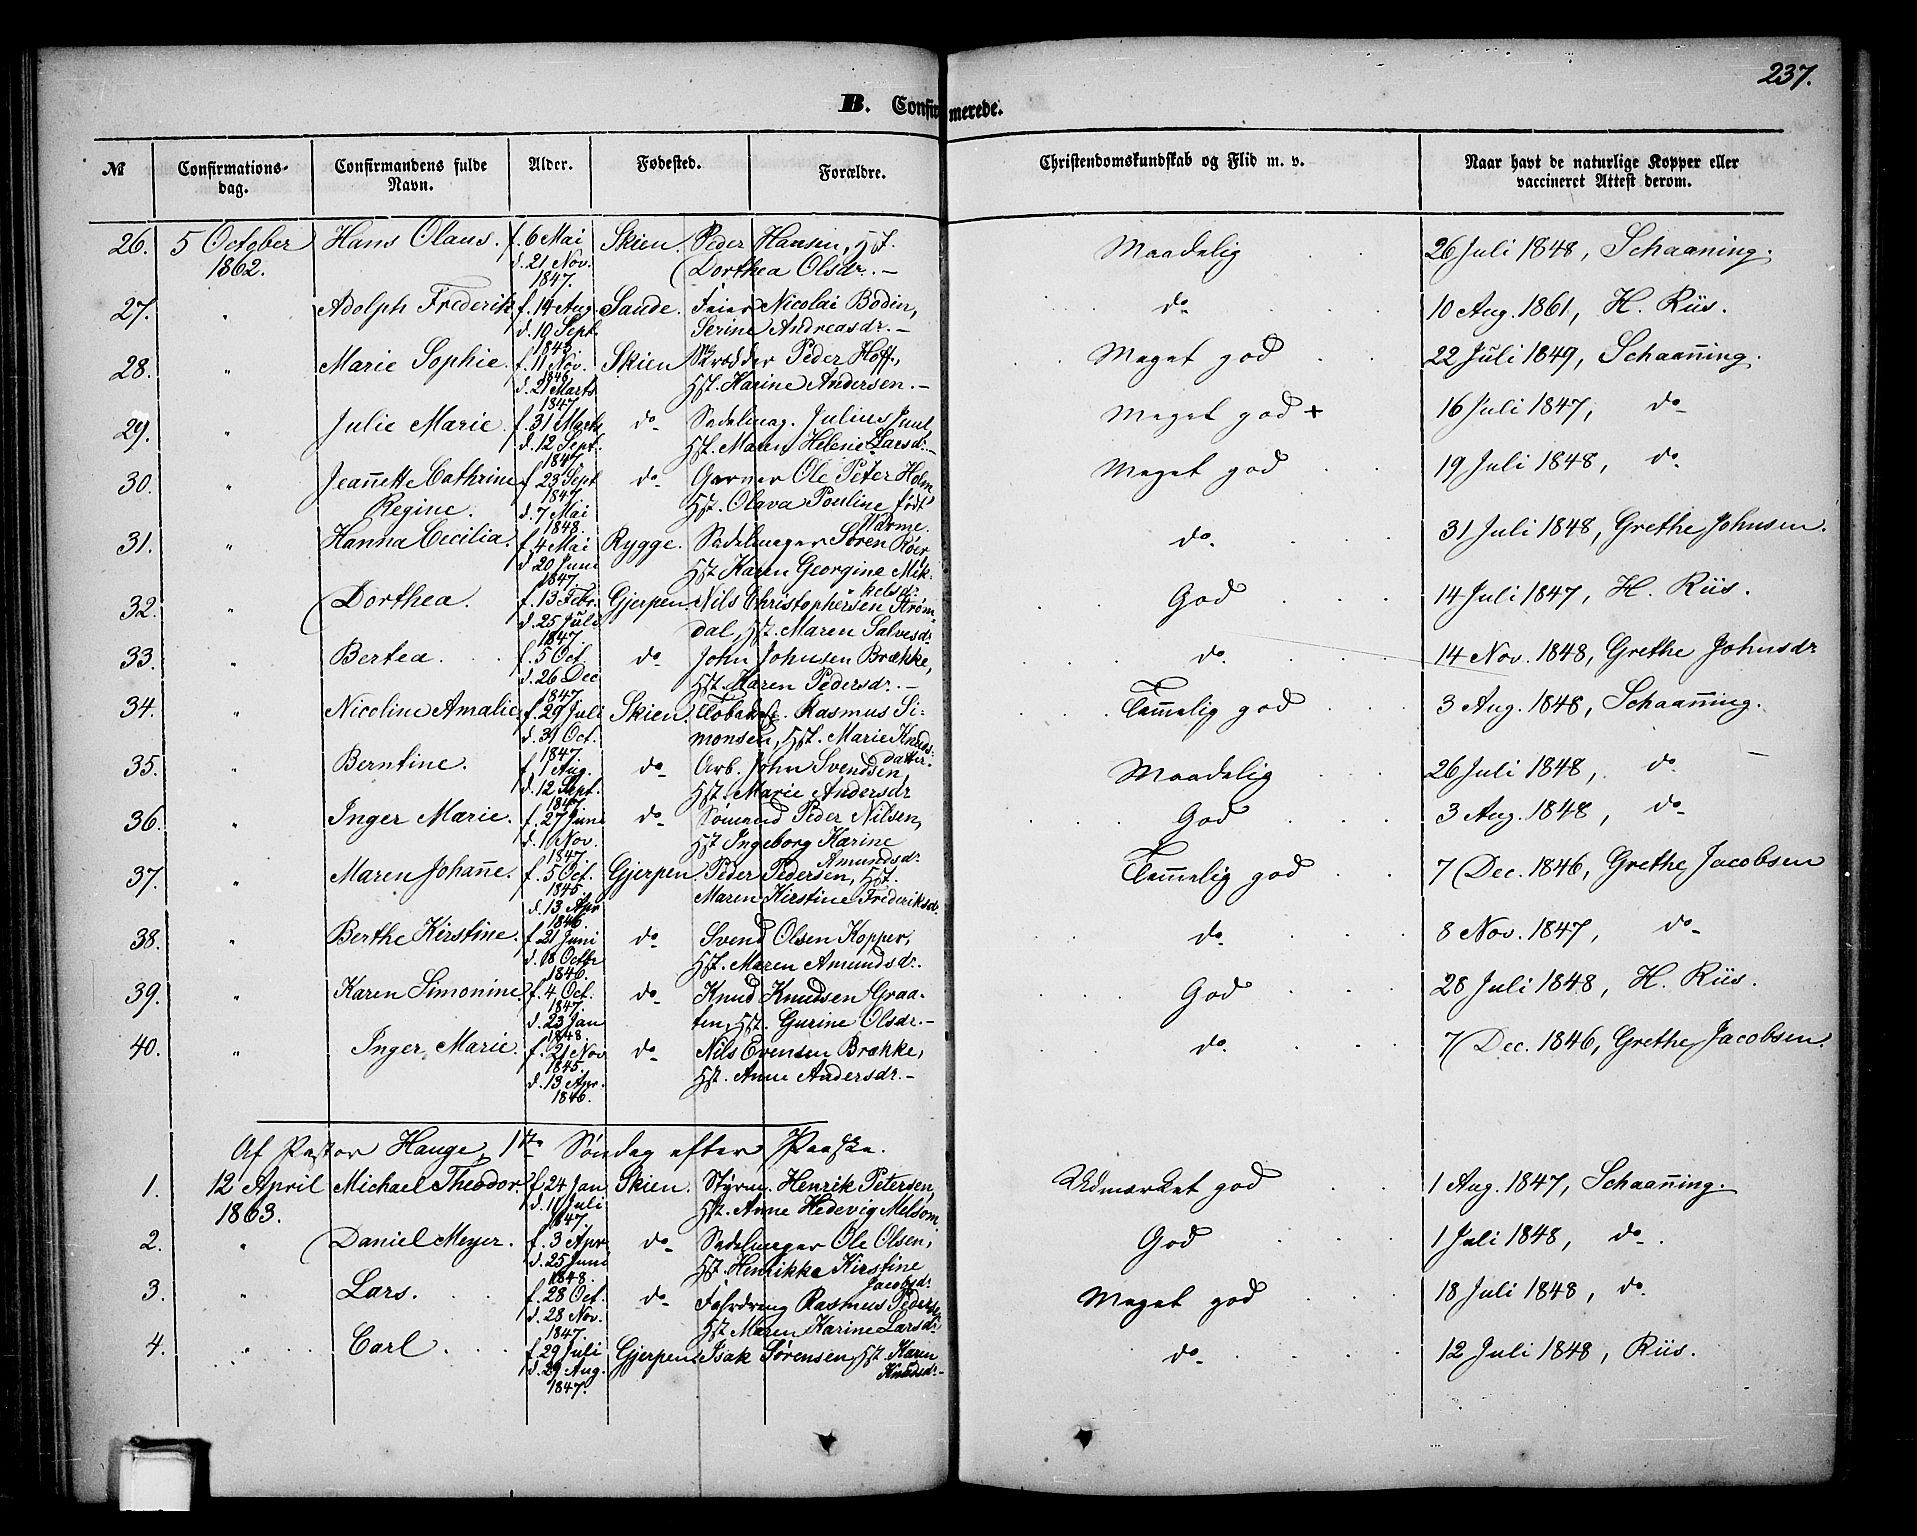 237.
B. Confirmerede.
№ Confirmations-dag. Confirmandens fulde Navn. Alder. Fødested. Forældre. Christendomskundskab og Flid m. v. Naar havt de naturlige Kopper eller vaccineret Attest derom.
26. 5 October Hans Olaus. f. 6 Mai Skien. Peder Hansen, Hst. Maadelig 26 Juli 1848, Schaaning.
1862. d. 21 Nov. Dorthea Olsdr. –
1847.
27. " Adolph Frederik f. 14 Aug. Sande. Feier Nicolai Bodin, do 10 Aug. 1861, H. Riis.
d. 10 Sept. Serine Andreasdr. –
1845
28. " Marie Sophie. f. 11 Nov. Skien Skræder Peder Hoff, Meget god 22 Juli 1849, Schaan̄ing.
1846
d. 21 Marts Hst. Karine Andersen. –
1847
29. " Julie Marie. f. 31 Marts do Sadelmag. Julius Juul Meget god + 16 Juli 1847, do
d. 12 Sept. Hst. Maren Helene Larsdr. –
1847
30. " Jean̄ette Cathrine f. 23 Sept do Garver Ole Peter Holm Meget god 19 Juli 1848, do
1847
Regine. d. 7 Mai Hst. Olava Pouline født
1848. Warme.
31. " Hanna Cecilia. f. 4 Mai Rygge. Sadelmager Søren Röer, do. 31 Juli 1848, Grethe Johnsen.
d. 20 Juni Hst Karen Georgine Mik-
1847. kelsdr.
32. " Dorthea. f. 13 Febr. Gjerpen. Nils Christophersen Strøm- God 14 Juli 1847, H. Riis.
d. 25 Juli dal, Hst. Maren Salvesdr.
1847.
33. " Bertea. f. 5 Oct. do John Johnsen Brække, do. 14 Nov. 1848, Grethe Johnsdr
d. 26 Dec Hst. Maren Pedersdr. –
1847
34. " Nicoline Amalie f. 29 Juli Skien. Rasmus Si- Tem̄elig god 3 Aug. 1848, Schaan̄ing.
d. 31 Oct. monsen, Hst. Marie Knuds-
1847. datter.
35. " Berntine. f. 1 Aug. do Arb. John Svendsen, Maadelig 26 Juli 1848, do
d. 12 Sept. Hst. Marie Andersdr
1847
36. " Inger Marie. f. 27 Juni do Sömand Peder Nilsen, God 3 Aug. 1848, do
d. 1 Nov. Hst Ingeborg Karine
1847. Amundsdr.
37. " Maren Johan̄e. f. 5 Oct. Gjerpen Peder Pedersen, Hst. Tem̄elig god 7 Dec. 1846, Grethe Jacobsen
1845.
d. 13 Apr Maren Kirstine Frederiksdr.
1846.
38. " Berthe Kirstine. f. 21 Juni do Svend Olsen Kopper, do 8 Nov. 1847, do
d. 18 Octbr Hst. Maren Amundsdr.
1846.
39. " Karen Simonine. f. 4 Oct. do Knud Knudsen Graa- God 28 Juli 1848, H. Riis.
1847
d. 23 Jan ten, Hst. Gurine Olsdr. –
1848.
40. " Inger Marie. f. 21 Nov do Nils Evensen Brække, do. 7 Dec. 1846, Grethe Jacobsen.
1845.
d. 13 Apr. Hst. Anne Andersdr. –
1846.
Af Pastor Hauge, 1ste Søndag efter Paaske.
1. 12 April Michael Theodor. f. 24 Jan Skien. Styrm. Henrik Petersen, Udmærket god 1 Aug. 1847, Schaan̄ing.
1863. d. 11 Juli Hst. Anne Hedevig Melsom.
1847.
2. " Daniel Meyer. f. 3 Apr do Sadelmager Ole Olsen, God 1 Juli 1848, do.
d. 25 Juni Hst. Henrikke Kirstine
1848. Jacobsdr.
3. Lars. f. 28 Oct. do Rasmus Pedersen Meget god 18 Juli 1848, do.
d. 28 Nov. Hst Maren Karine Larsdr.
1847.
4. " Carl f. 29 Juli Gjerpen. Isak Sørensen, Hst. Karen do 12 Juli 1848, Riis.
d. 29 Aug. Knudsdr. –
1847.